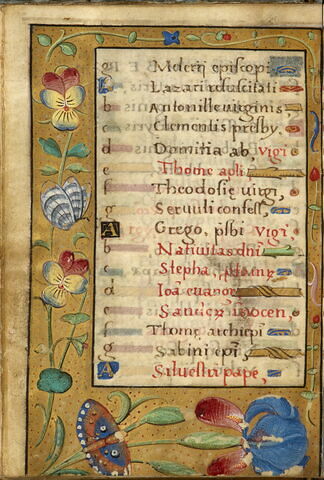 g Meletij episcopi
A Lazari resuscitati
b Antonille virginis,
c Clementis presby.
d Domitia ab, vigi
e Thome apli
f Theodosie virgi,
g Seruuli confess,
A Grego, psbi vigi
b Natiuitas dni
c Stepha,
d Ioā euange
e Sanctor inocen,
f Thome archiepi
g Sabini epi,
A Siluestri pape,